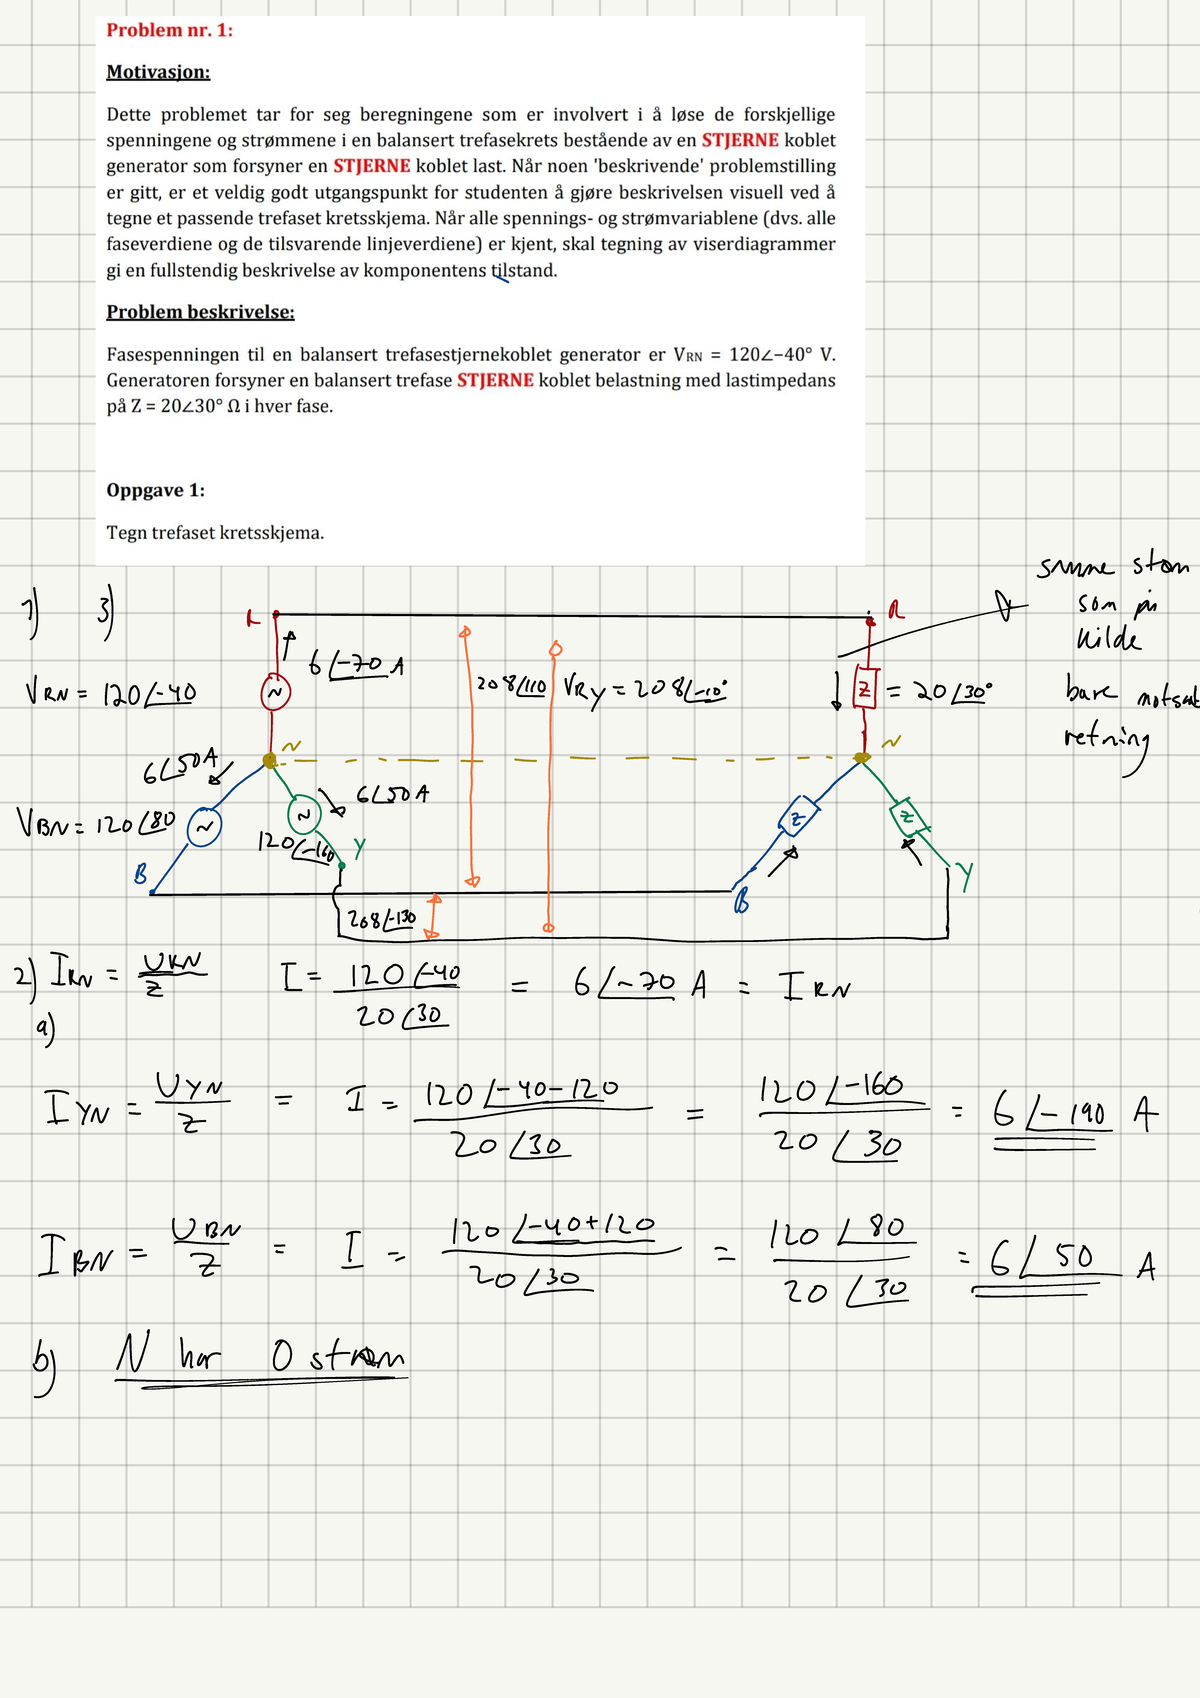 Problem nr. 1:
Motivasjon:
Dette problemet tar for seg beregningene som er involvert i å løse de forskjellige
spenningene og strømmene i en balansert trefasekrets bestående av en STJERNE koblet
generator som forsyner en STJERNE koblet last. Når noen 'beskrivende' problemstilling
er gitt, er et veldig godt utgangspunkt for studenten å gjøre beskrivelsen visuell ved å
tegne et passende trefaset kretsskjema. Når alle spennings- og strømvariablene (dvs. alle
faseverdiene og de tilsvarende linjeverdiene) er kjent, skal tegning av viserdiagrammer
gi en fullstendig beskrivelse av komponentens tilstand.
Problem beskrivelse:
Fasespenningen til en balansert trefasestjernekoblet generator er VRN = 120∠−40° V.
Generatoren forsyner en balansert trefase STJERNE koblet belastning med lastimpedans
på Z = 20∠30° Ω i hver fase.
Oppgave 1:
Tegn trefaset kretsskjema.
1) 3)
samme
som på
kilde
bare motsatt
retning
R
6∠-70 A
VRN = 120∠-40
208∠110 VRY = 208∠-10°
Z = 20∠30°
N N
6∠50A
6∠50A
VBN = 120∠80
120∠-160 Y
Z Z
B B Y
208∠-130
2) IRN = URN/Z I = 120∠-40 / 20∠30 = 6∠-70 A = IRN
a)
IYN = UYN/Z = I = 120∠-40-120 / 20∠30 = 120∠-160 / 20∠30 = 6∠-190 A
IBN = UBN/Z = I = 120∠-40+120 / 20∠30 = 120∠80 / 20∠30 = 6∠50 A
b) N har 0 strøm